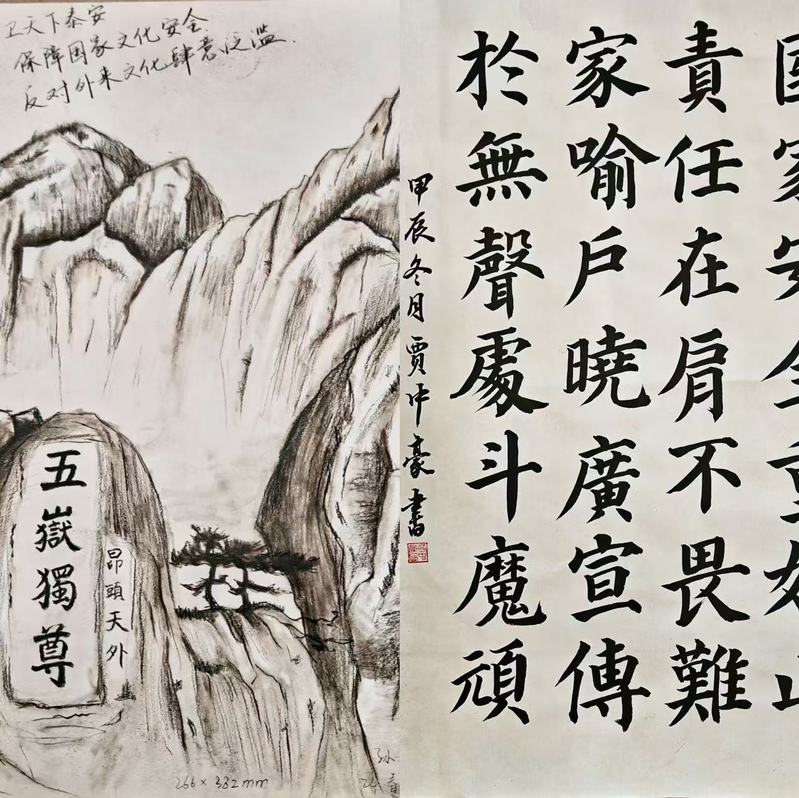 卫天下泰安
保障国家文化安全
反对外来文化肆意泛滥.
五嶽獨尊
昂頭天外
266×382mm
孙
国家安全重如山
責任在肩不畏難
家喻戶曉廣宣傳
於無聲處斗魔頑
甲辰冬月賈中豪書